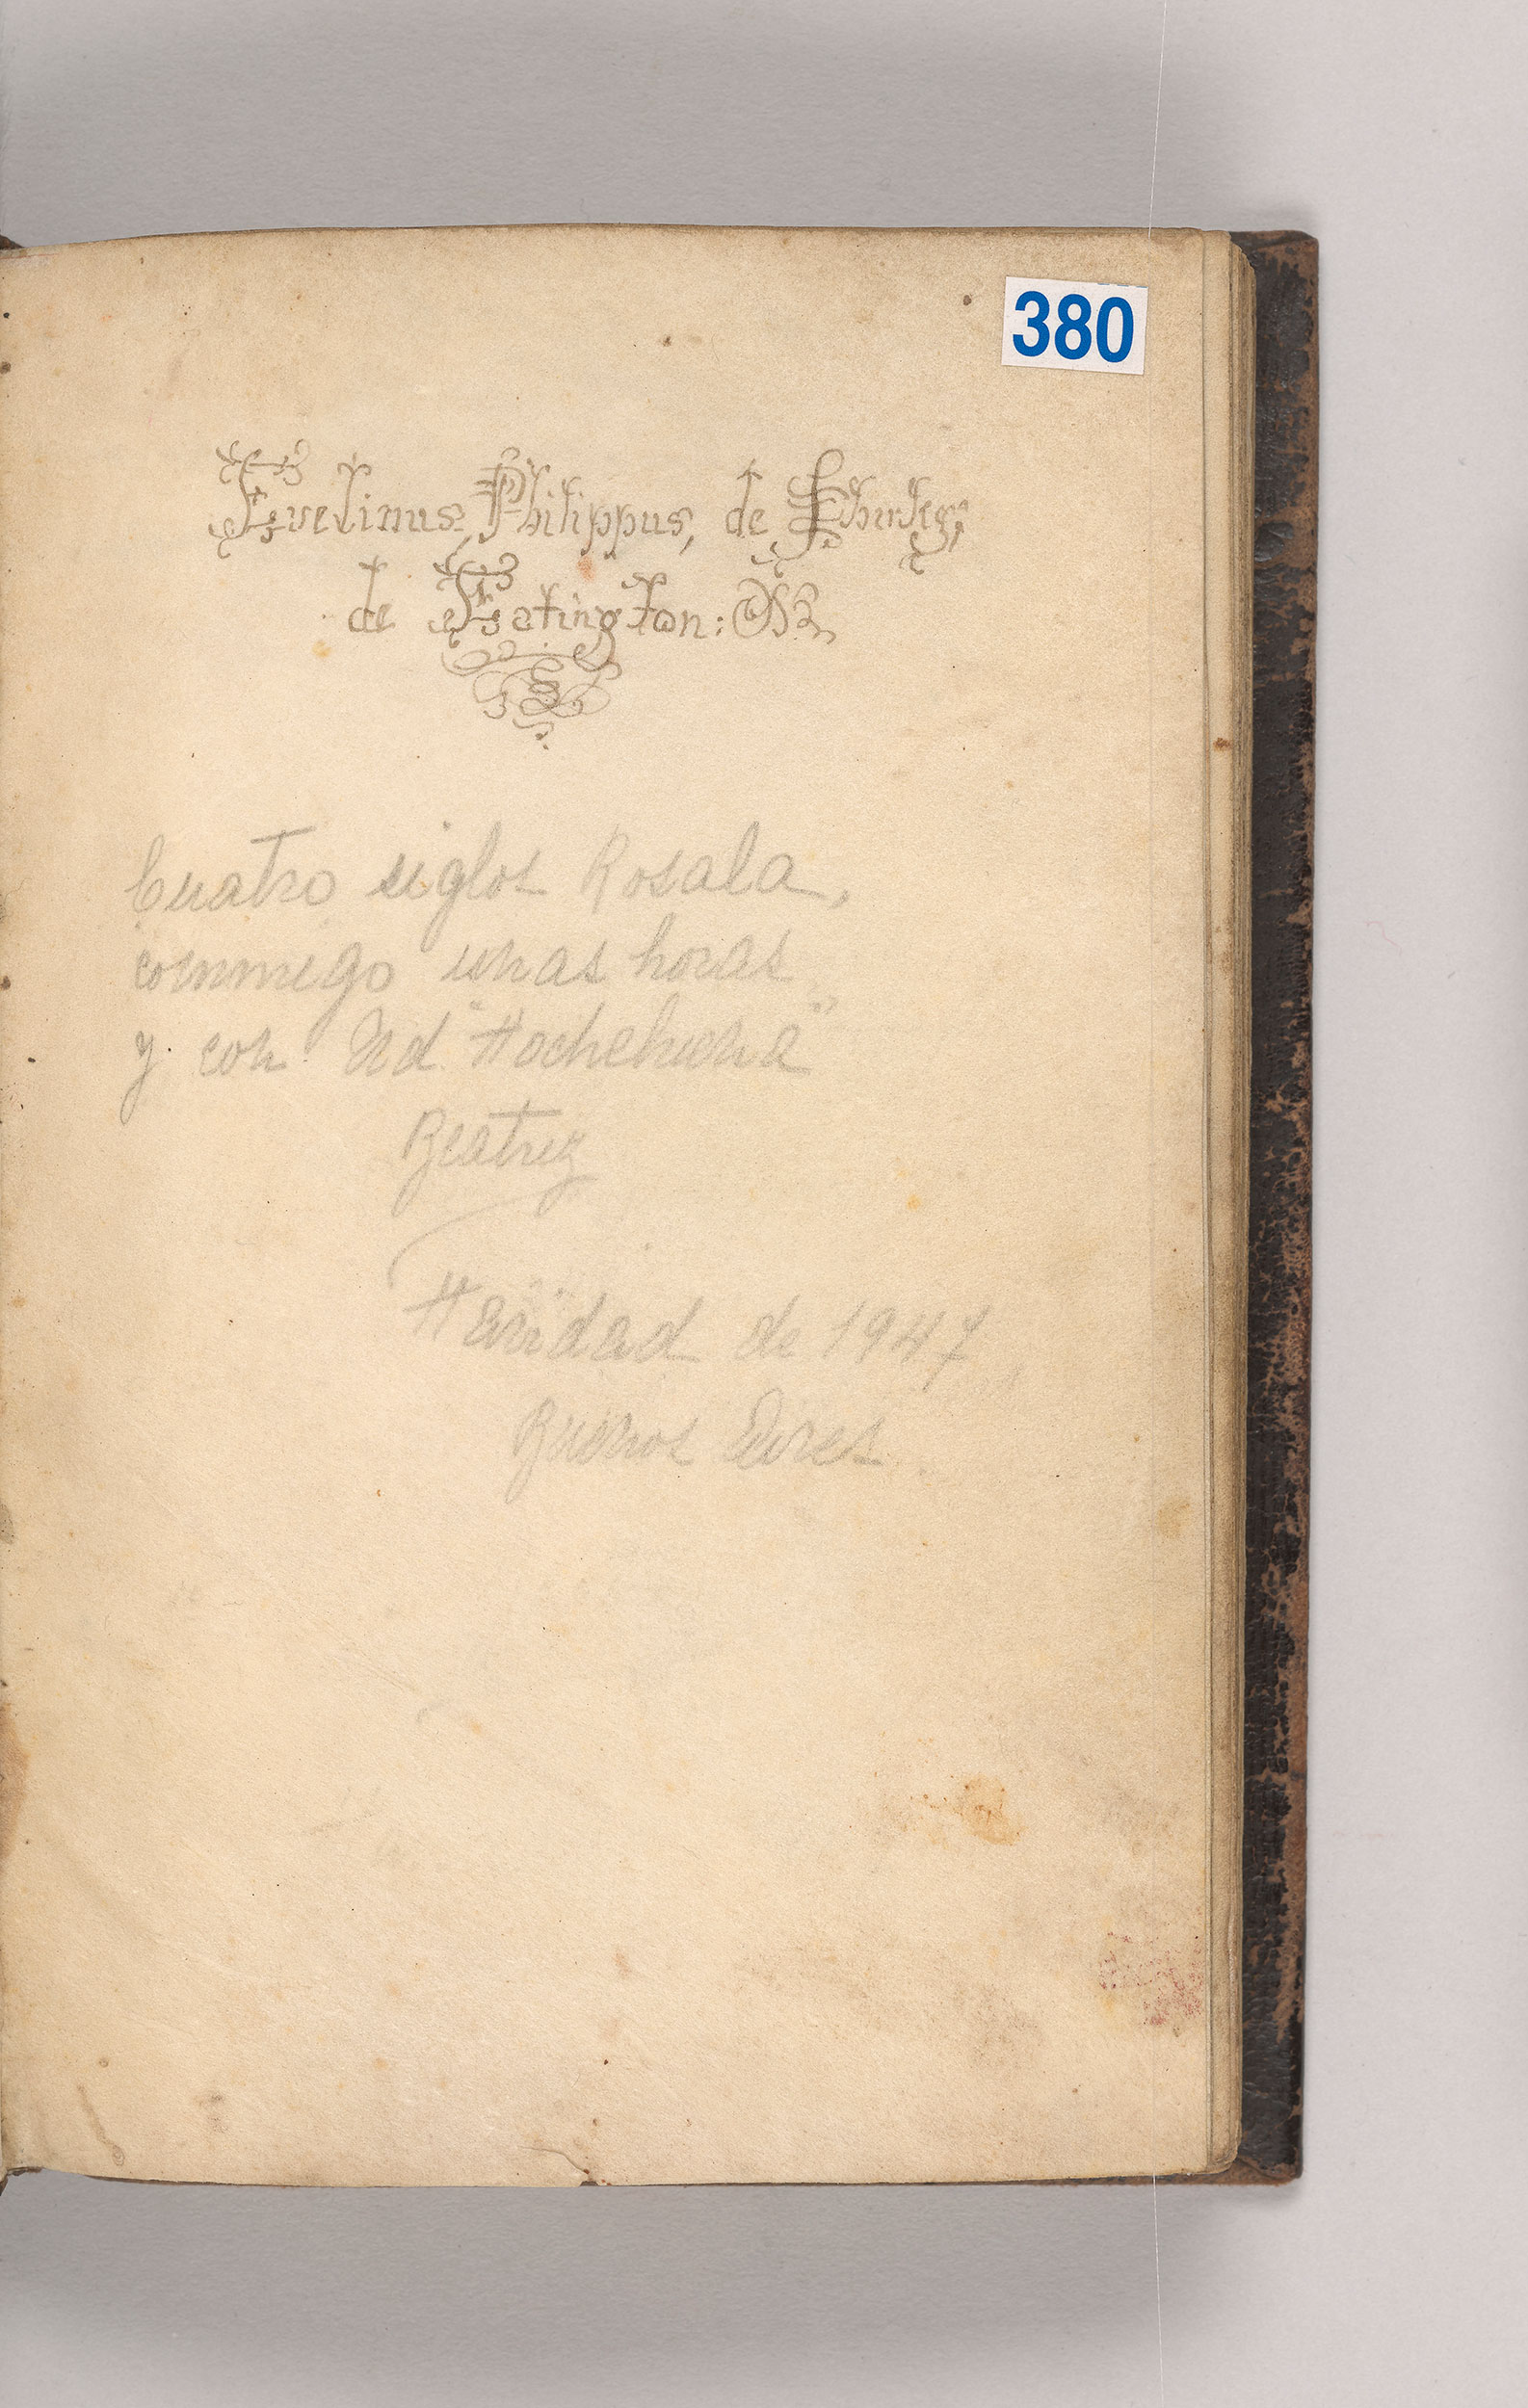 380
Evelinus Philippus, de
de Eatington:
Cuatro siglos Rosala,
commigo unas horas
y con Ud "Nochebuena"
Beatriz
Navidad de 1947
Buenos Aires